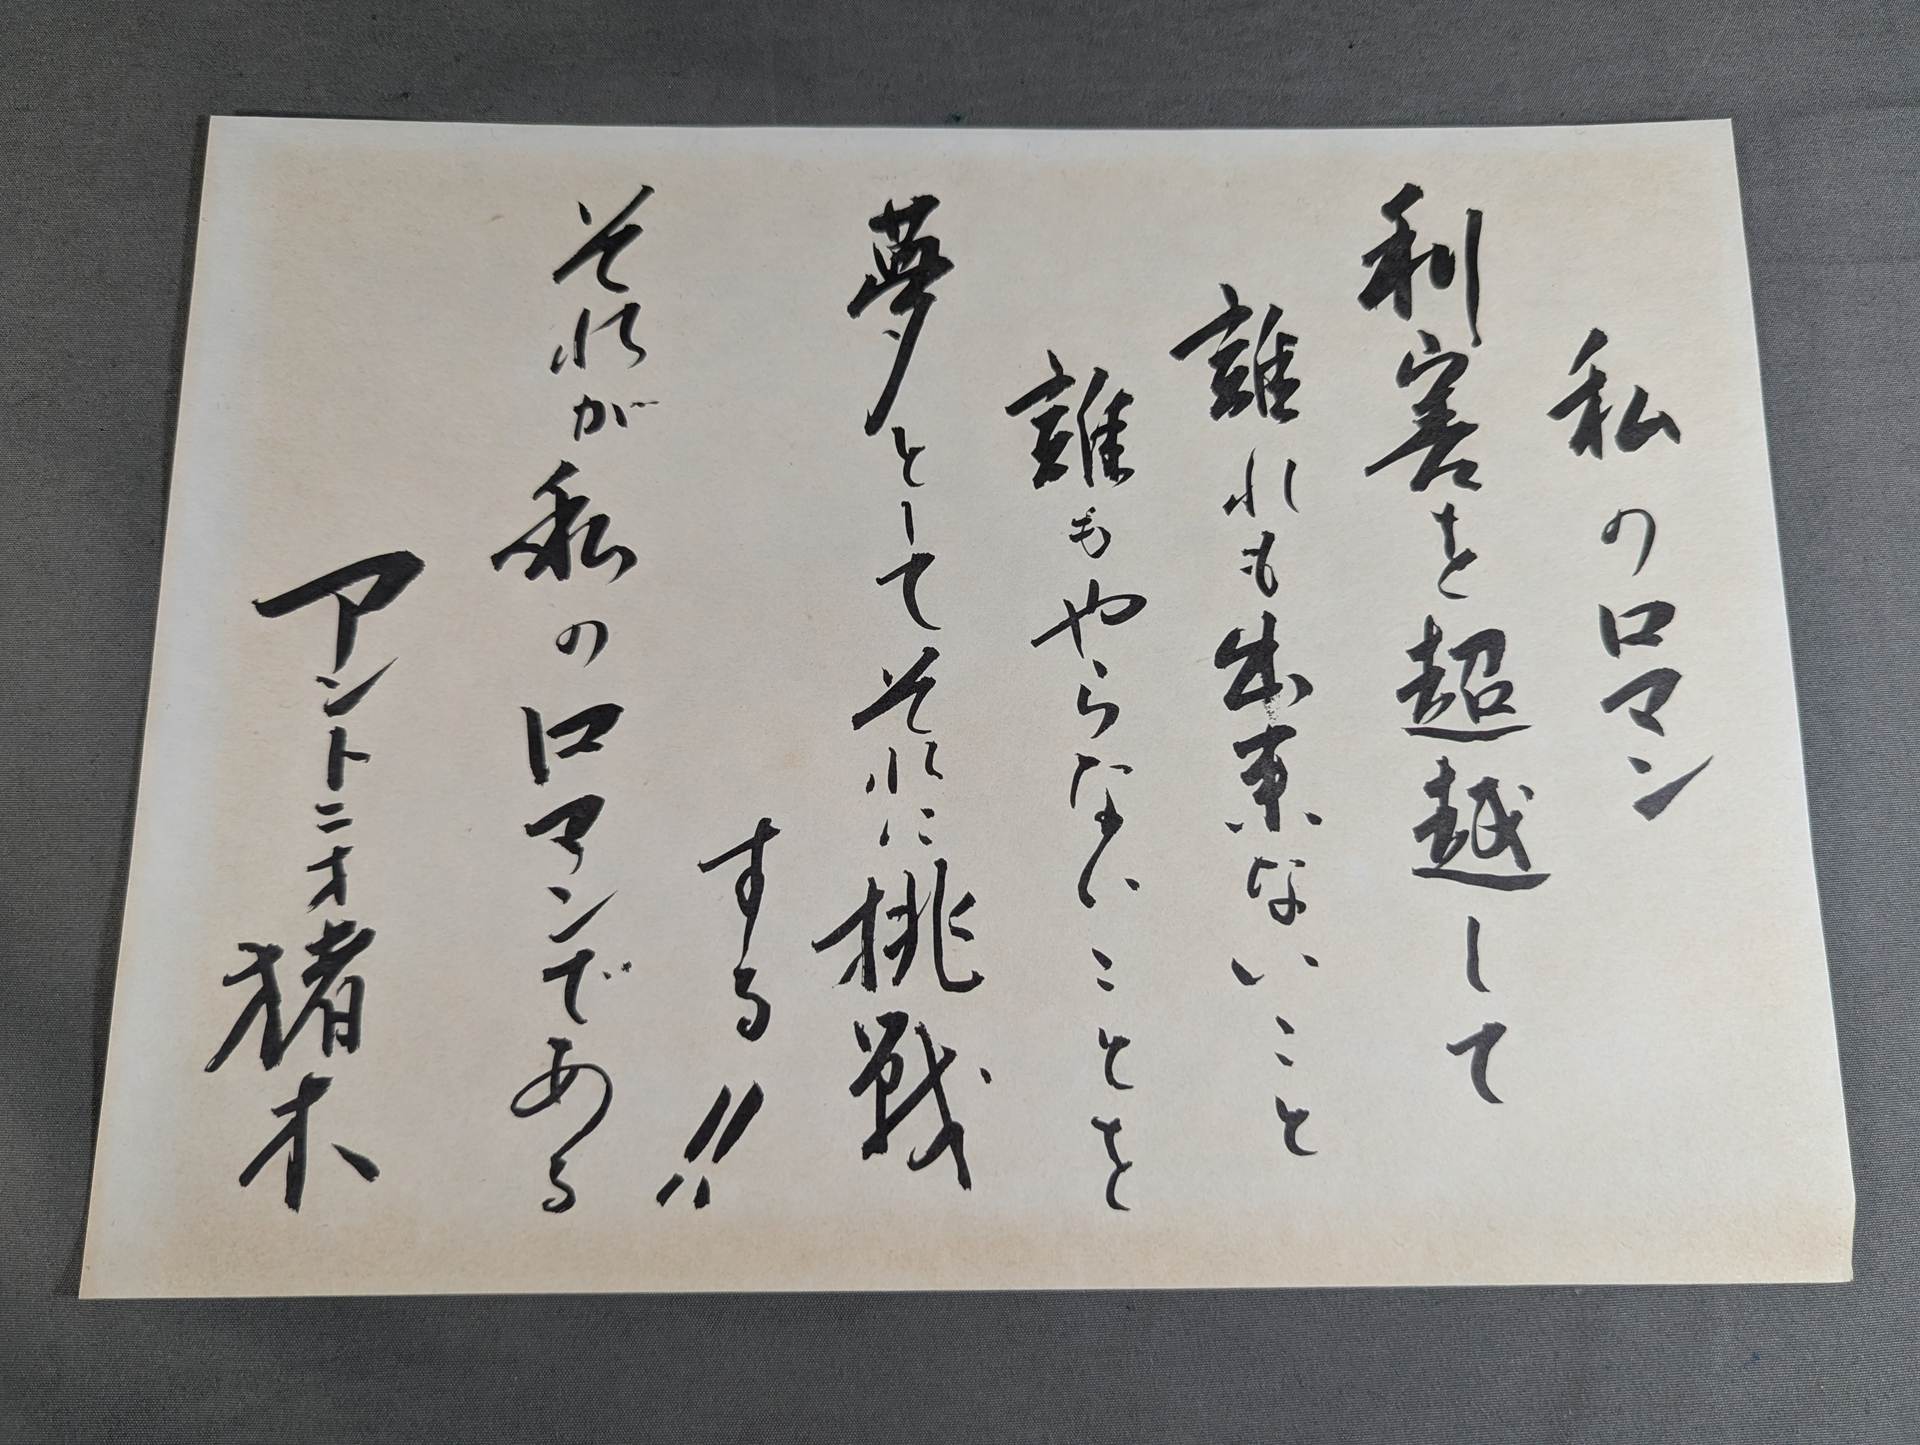 私のロマン
利害を超越して
誰れも出来ないこと
誰もやらないことを
夢としてそれに挑戦
する!!
それが私のロマンである
アントニオ猪木